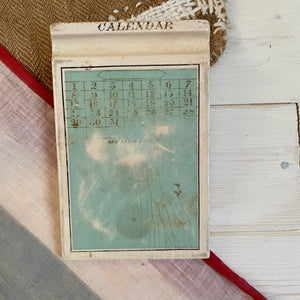 CALENDAR
1 2 3 4 5 6 7
8 9 10 11 12 13 14
15 16 17 18 19 20 21
22 23 24 25 26 27 28
29 30 31